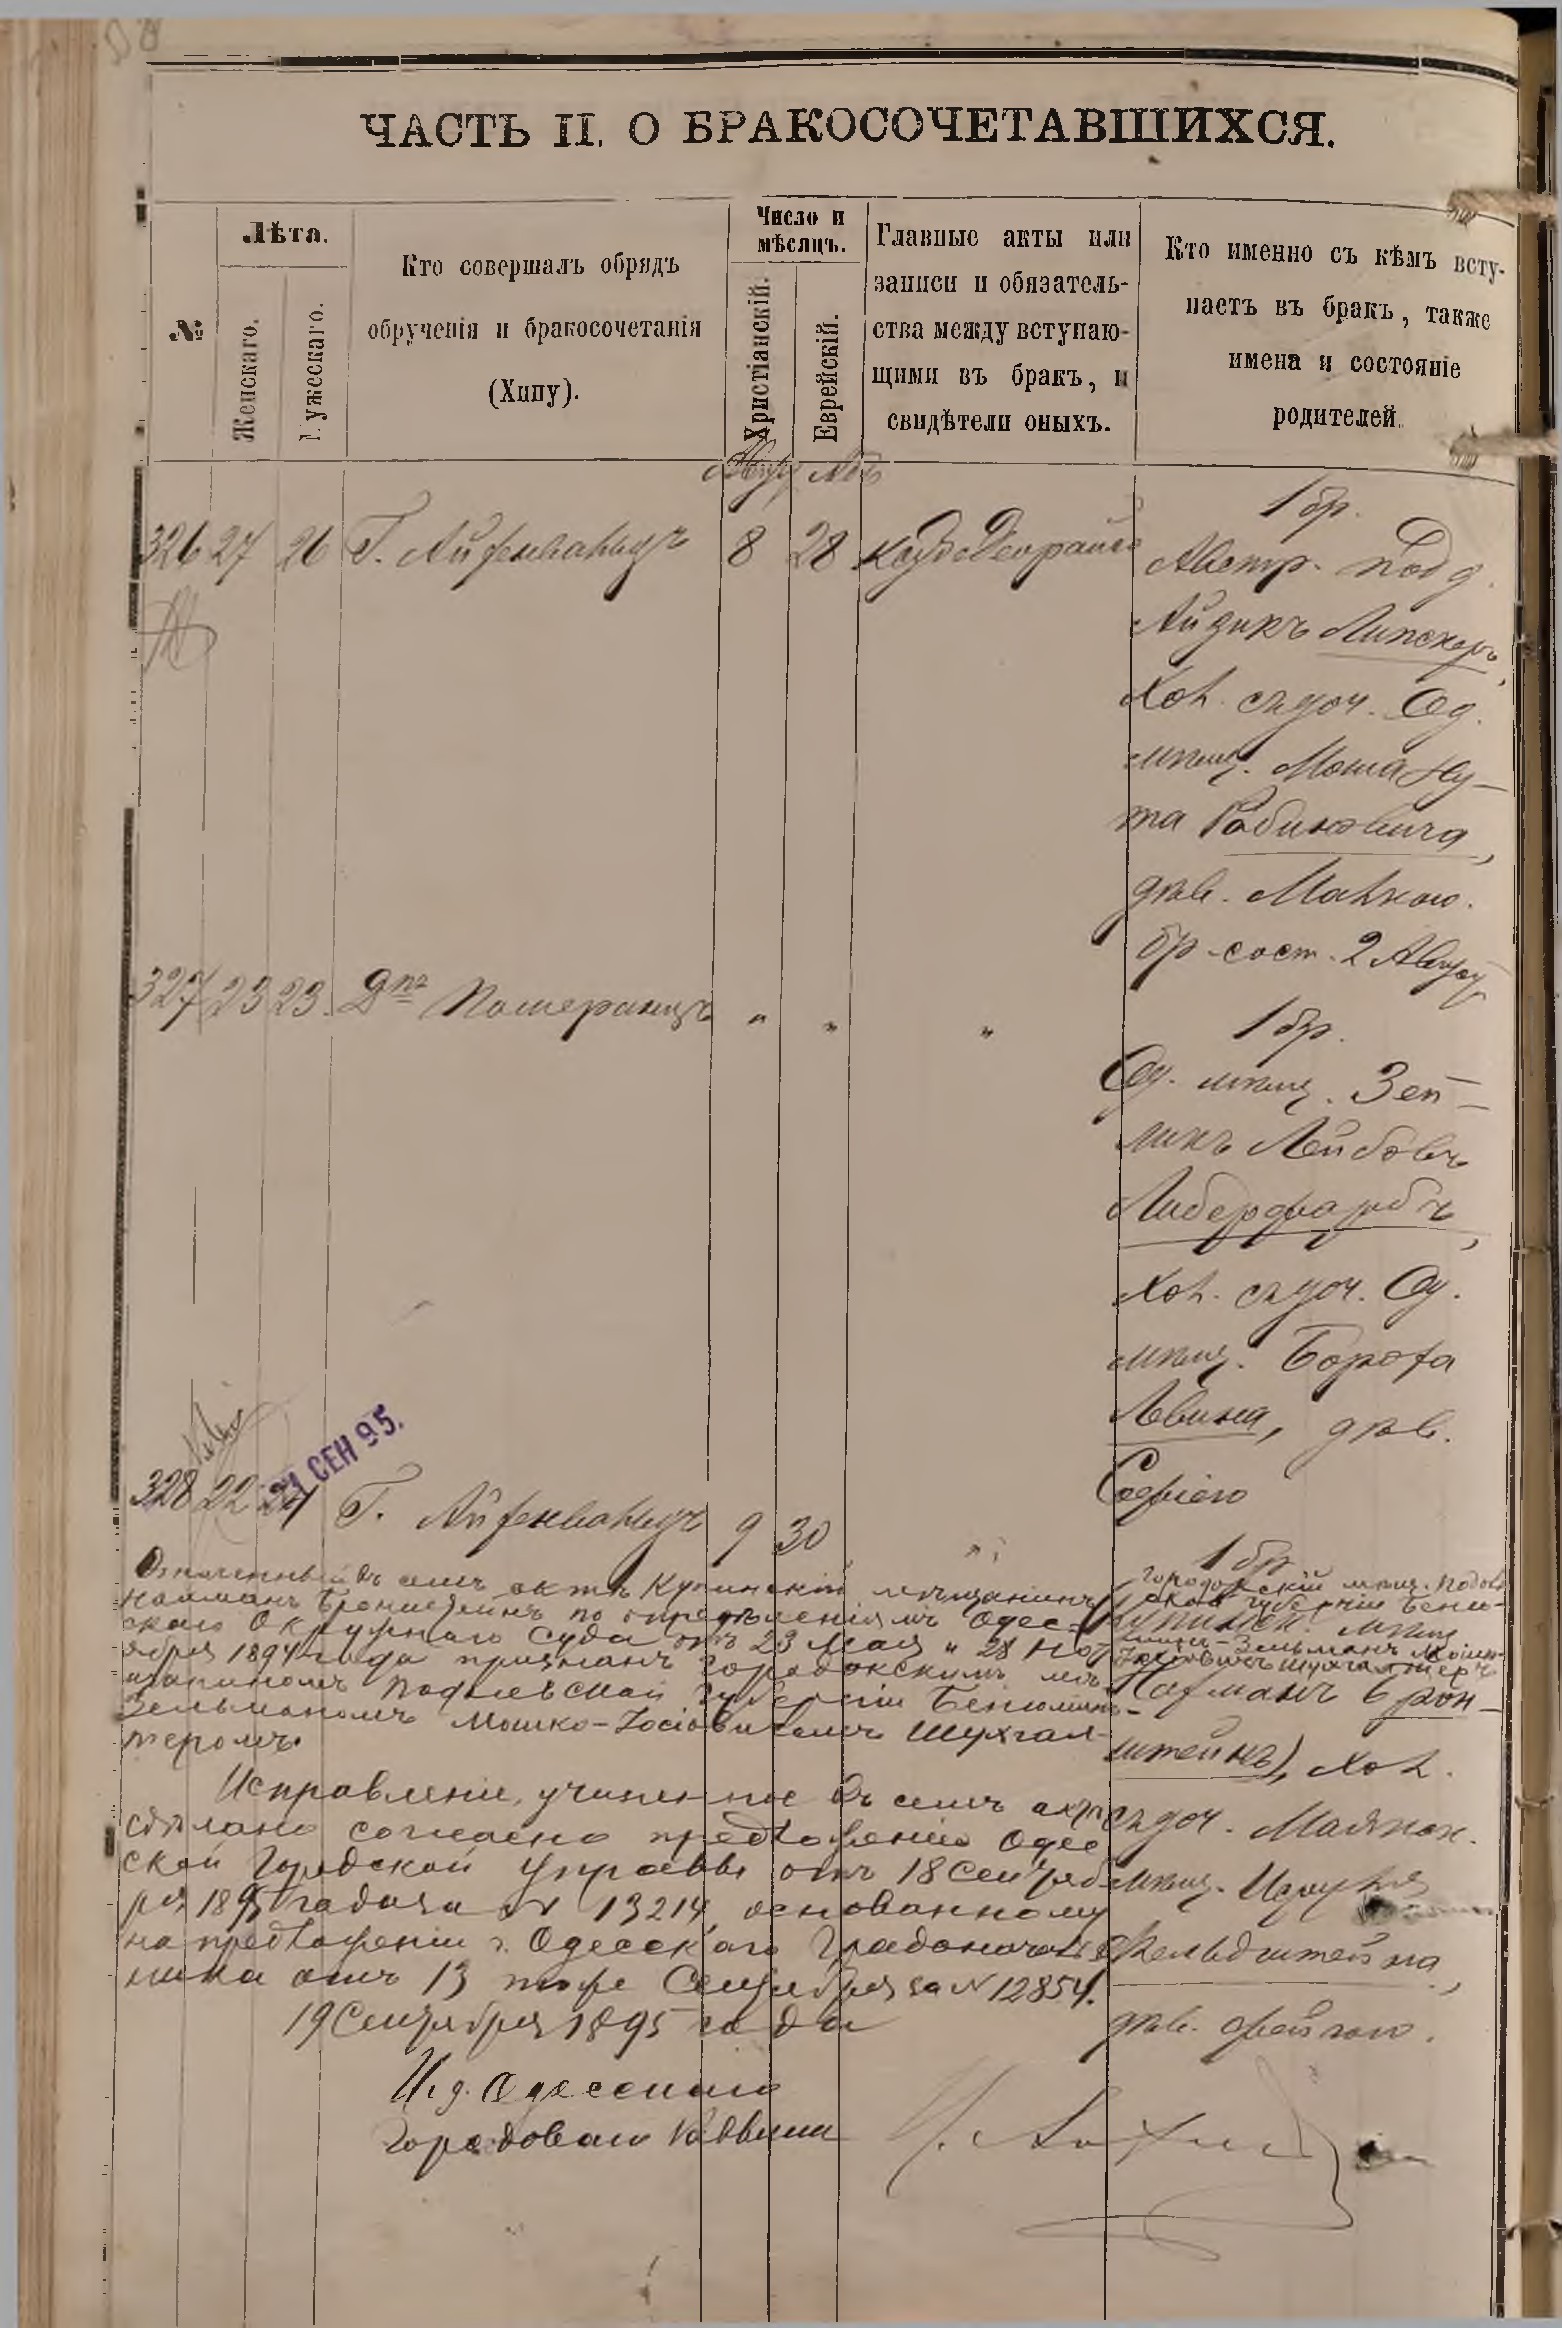 ЧАСТЬ II. О БРАКОСОЧЕТАВШИХСЯ.
№
Лѣта.
Женскаго.
Мужескаго.
Кто совершалъ обрядъ
обрученія и бракосочетанія
(Хипу).
Число и
мѣсяцъ.
Христіанскій.
Еврейскій.
Главные акты или
записи и обязатель-
ства между вступаю-
щими въ бракъ, и
свидѣтели оныхъ.
Кто именно съ кѣмъ всту-
паетъ въ бракъ, также
имена и состояніе
родителей.
Авгу
326 27 26 Г. Айзенванцъ 8 28
1 бр.
Австр. под.
Айзикъ Липскеръ,
хол. съ доч. Од.
мѣщ. Моша Ну-
та Рабиновича,
дѣв. Малкою.
бр. сост. 2 Август
327 23 23. Д-ръ Померанцъ " " "
1 бр.
Од. мѣщ. Зей-
ликъ Лейбовъ
Либерфарбъ,
хол. съ доч. Од.
мѣщ. Бороха
Левина, дѣв.
Софіею
21 СЕН 95.
328 22 24 Г. Айзенванцъ 9 30
1 бр.
Городокскій мѣщ. Подоль
ской губерніи Беню-
минъ-Зельманъ Мошко-
Іосіовичъ Шухгалтеръ
(Купинск. мѣщ.
Нафманъ Брон-
штейнъ), хол.
съ доч. Маяков.
мѣщ. Израиля
Фельдштейна,
дѣв. Фейгою.
Означенный въ семъ актѣ Купинскій мѣщанинъ
Найманъ Бронштейнъ по опредѣленіямъ Одес-
скаго Окружнаго Суда отъ 23 Мая и 28 Но-
ября 1894 года признанъ Городокскимъ мѣ-
щаниномъ Подольской губерніи Бенюмин-
Зельманомъ Мошко-Іосіовичемъ Шухгал-
теромъ.
Исправленіе, учиненное въ семъ актѣ
сдѣлано согласно предложенію Одес
ской Городской Управы отъ 18 Сентяб
ря 1895 года за № 13214, основанному
на предложеніи г. Одесскаго Градоначаль
ника отъ 13 того же Сентября за № 12854.
19 Сентября 1895 года
И. д. Одесскаго
Городового Раввина